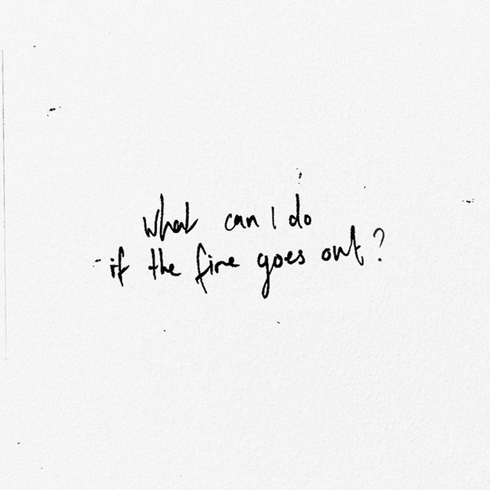 What can I do
if the fire goes out?